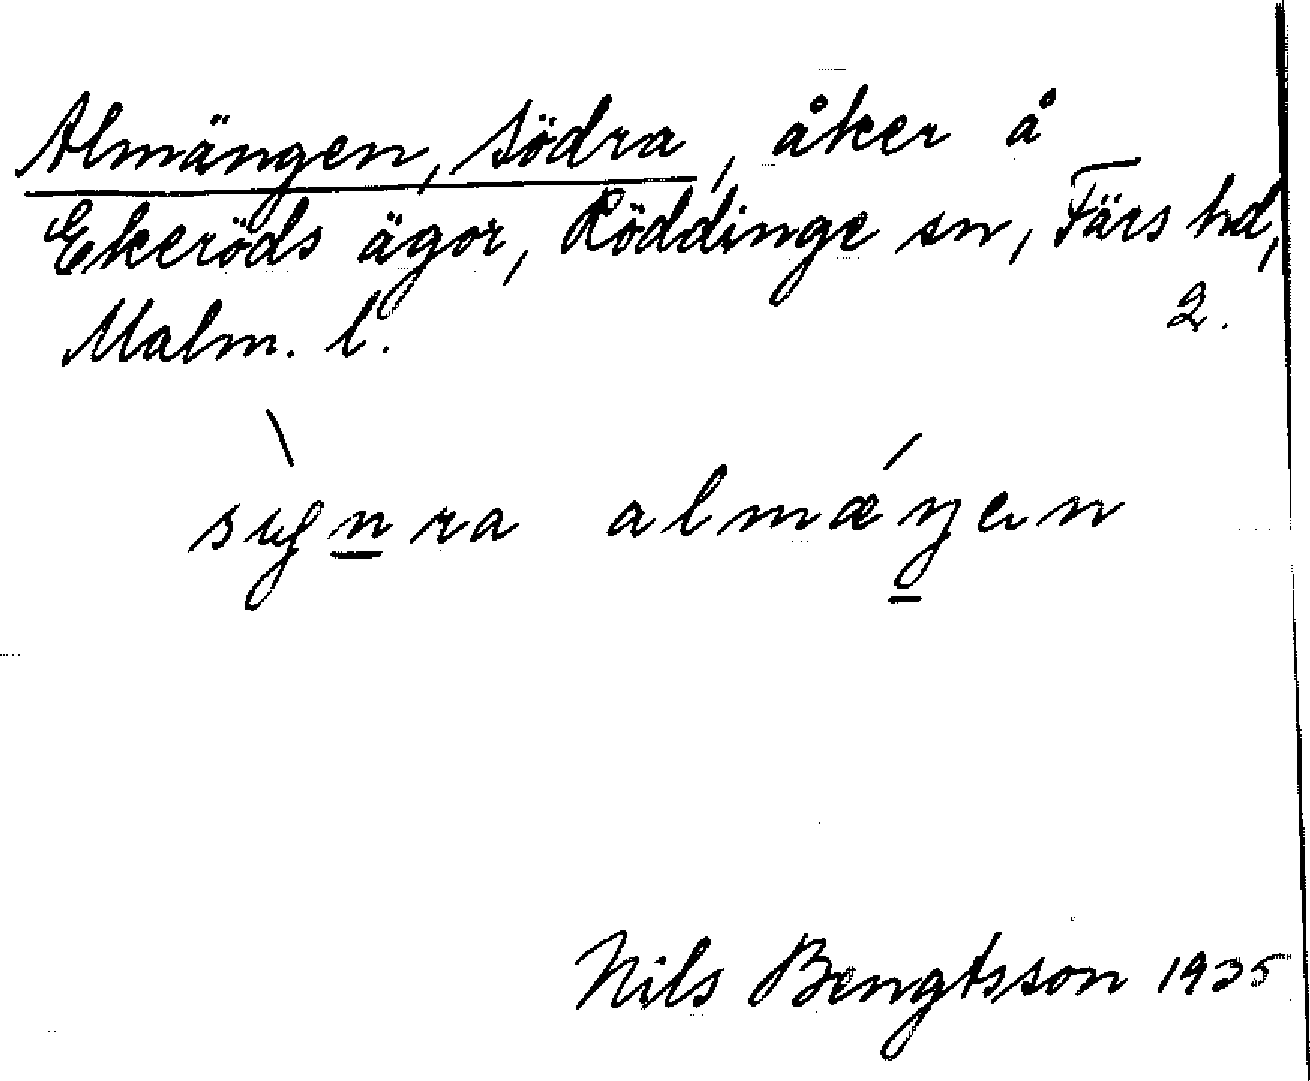 Almängen, södra, åker å
Ekeröds ägor, Röddinge sn, Färs hd,
Malm. l. 2.
almæŋen
Nils Bengtsson 1935